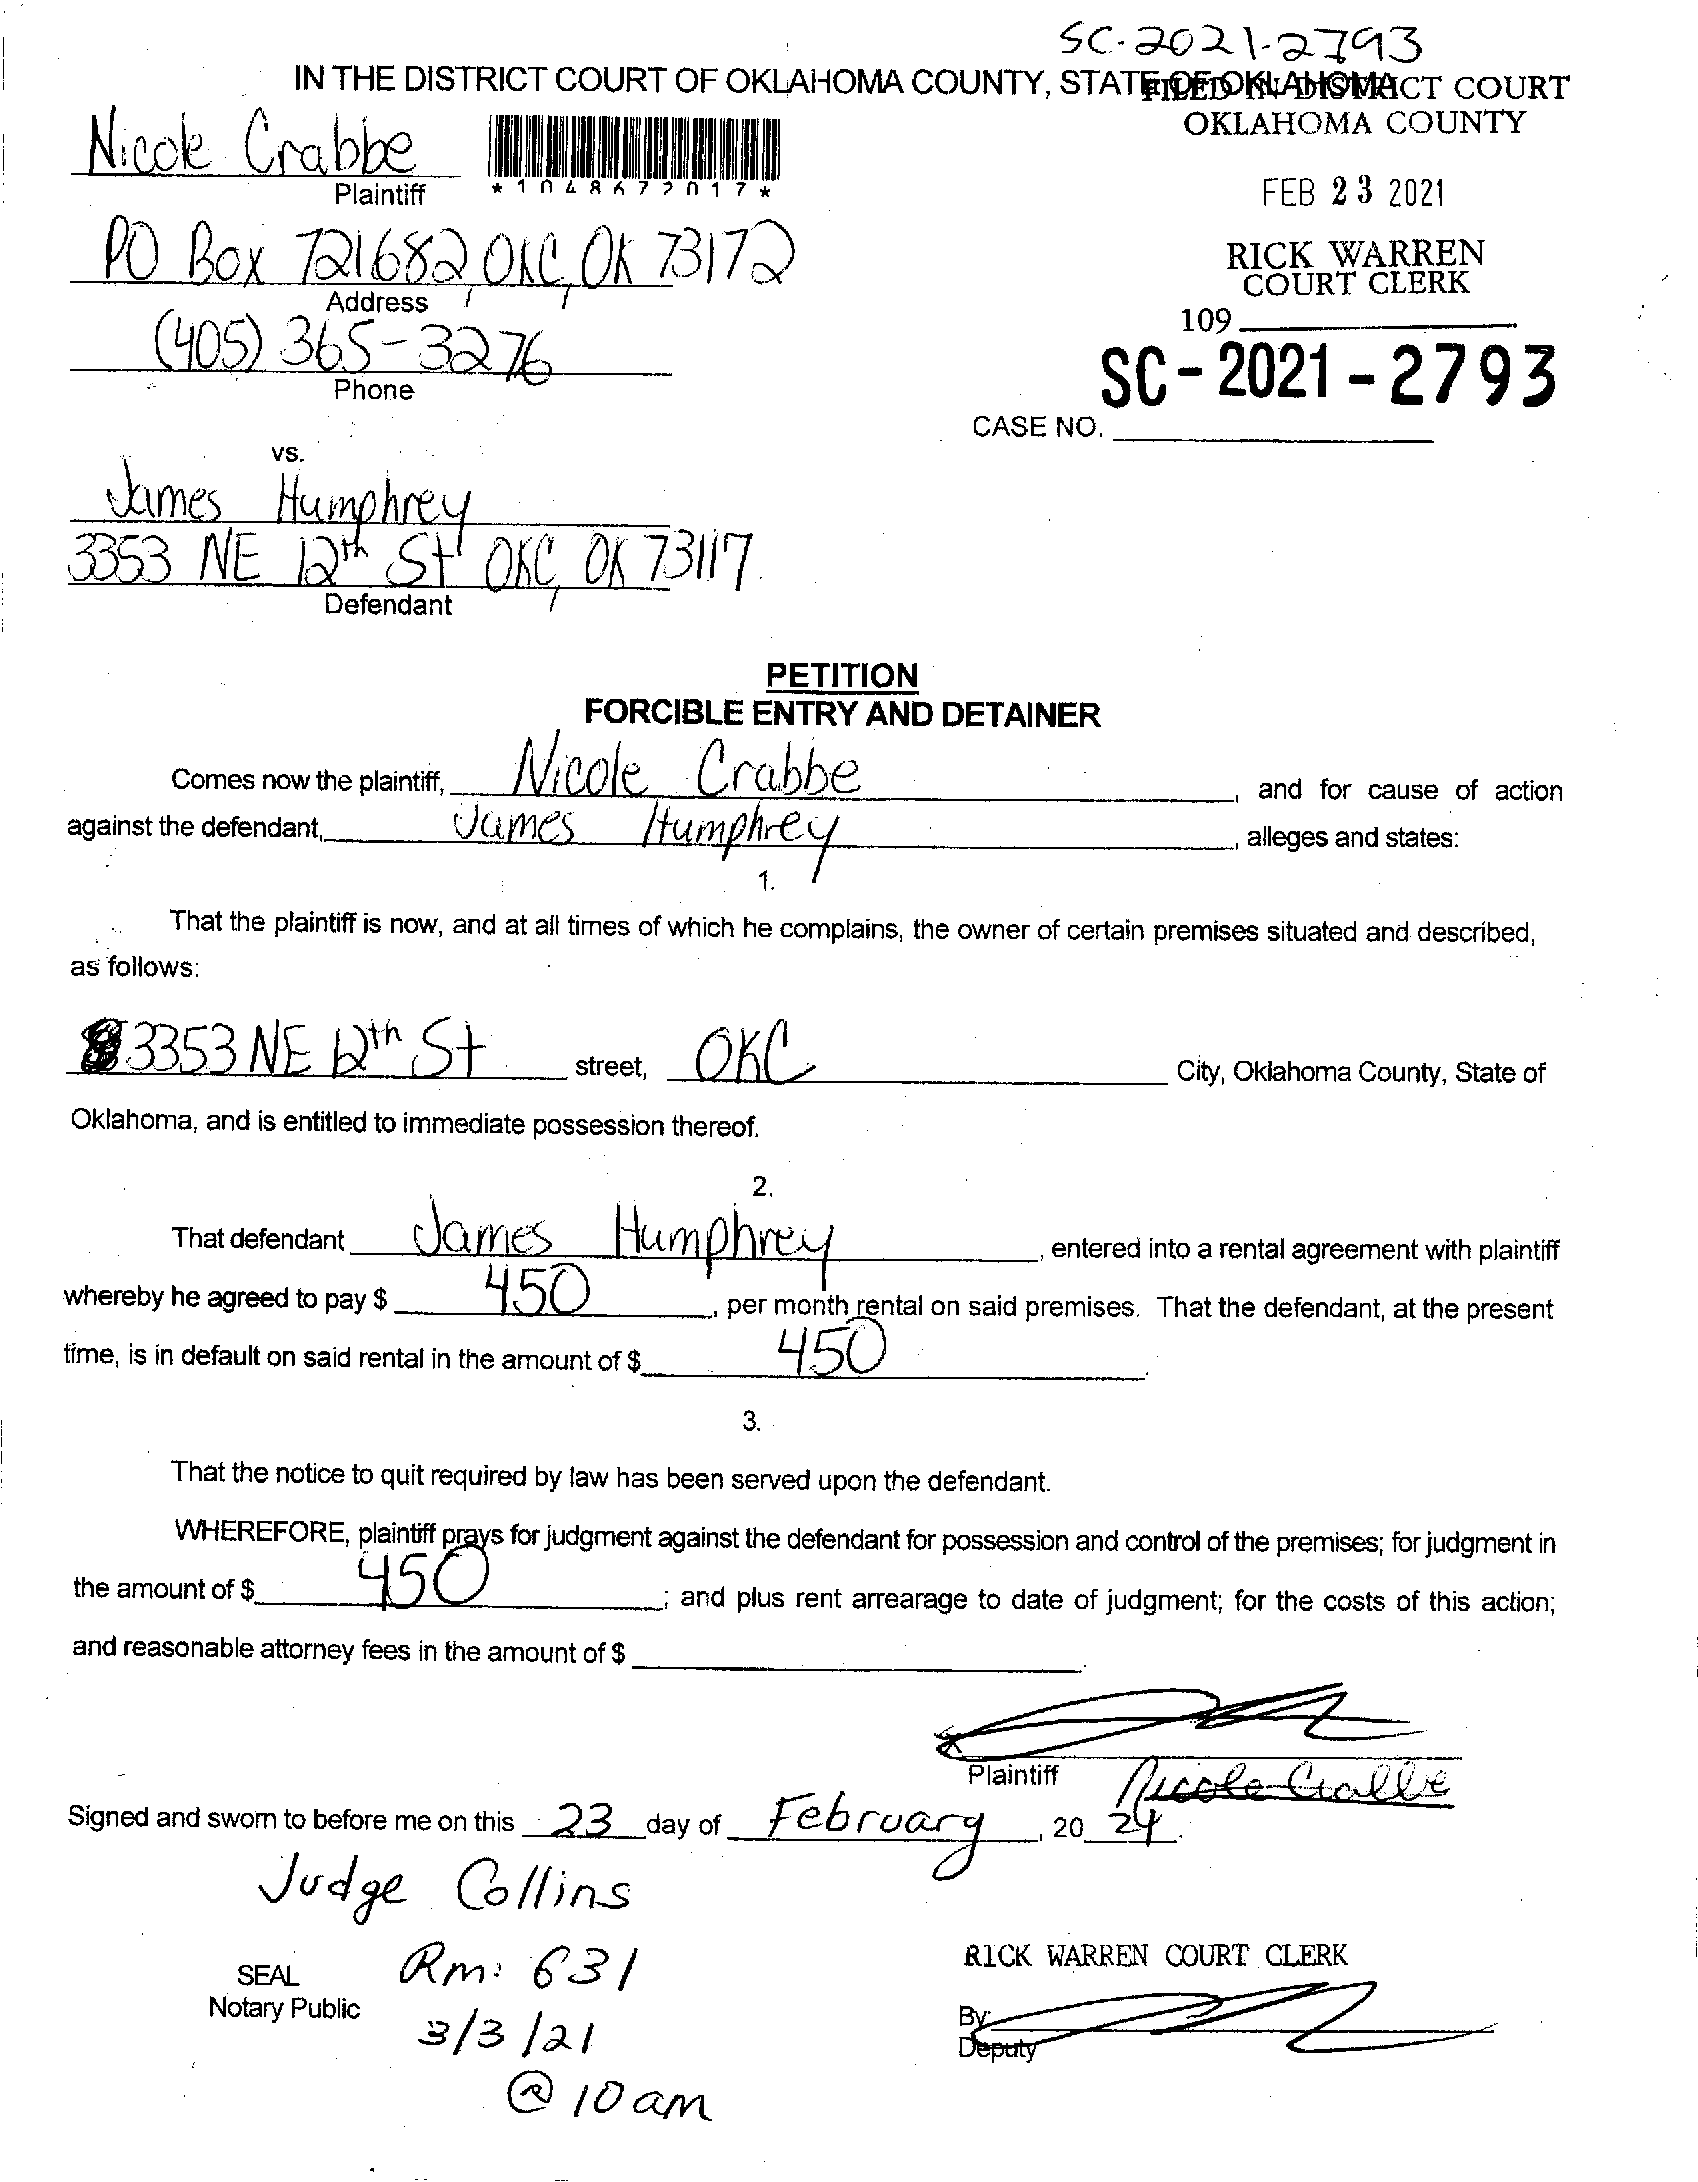 SC-2021-2793
IN THE DISTRICT COURT OF OKLAHOMA COUNTY, STATE OF OKLAHOMA
FILED IN DISTRICT COURT
OKLAHOMA COUNTY
Nicole Crabbe
Plaintiff
*1048672017*
FEB 23 2021
PO Box 721682 OKC, OK 73172
Address
RICK WARREN
COURT CLERK
109
(405) 365-3276
Phone
SC-2021-2793
CASE NO.
vs.
James Humphrey
3353 NE 12th St OKC, OK 73117
Defendant
PETITION
FORCIBLE ENTRY AND DETAINER
Comes now the plaintiff, Nicole Crabbe, and for cause of action
against the defendant, James Humphrey, alleges and states:
1.
That the plaintiff is now, and at all times of which he complains, the owner of certain premises situated and described,
as follows:
3353 NE 12th St street, OKC City, Oklahoma County, State of
Oklahoma, and is entitled to immediate possession thereof.
2.
That defendant James Humphrey, entered into a rental agreement with plaintiff
whereby he agreed to pay $ 450, per month rental on said premises. That the defendant, at the present
time, is in default on said rental in the amount of $ 450.
3.
That the notice to quit required by law has been served upon the defendant.
WHEREFORE, plaintiff prays for judgment against the defendant for possession and control of the premises; for judgment in
the amount of $ 450; and plus rent arrearage to date of judgment; for the costs of this action;
and reasonable attorney fees in the amount of $
Plaintiff Nicole Crabbe
Signed and sworn to before me on this 23 day of February, 20 24.
Judge Collins
SEAL Rm: 631
Notary Public
3/3/21
@ 10 am
RICK WARREN COURT CLERK
By:
Deputy